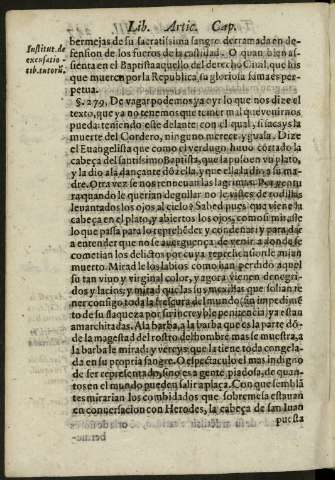 Lib. Artic. Cap.
Institut. de
excusatio-
tib. tutorũ.
bermejas de su sacratissima sangre derramada en de
fension de los fueros de la castidad. O quan bien as-
sienta en el Baptista aquello del derecho Ciuil, que los
que mueren por la Republica, su gloriosa fama es per-
petua.
§. 279. De vagar podemos ya oyr lo que nos dize el
texto, que ya no tenemos que temer mal que venirnos
pueda: teniendo este delante: con el qual, si sacays la
muerte del Cordero, ninguno merece ygualar. Dize
el Euangelista que como el verdugo, huuo cortado la
cabeça del santissimo Baptista, que la puso en vn plato,
y la dio a la dançante dõzella, y que ella la dio a su ma-
dre. Otra vez se nos renueuan las lagrimas.
quando le querian degollar no le vistes de rodillas
leuantados los ojos al cielo? Sabed pues que viene la
cabeça en el plato, y abiertos los ojos, como si mirasse
lo que passa para lo reprehẽder y condenar: y para dar
a entender que no se auerguença de venir a donde se
cometian los delictos por cuya reprehension le mian
muerto. Mirad le los labios como han perdido aquel
su tan viuo y virginal color, y agora vienen denegra-
dos y lacios: y mirad que las sus maxillas que solian te
ner consigo toda la frescura del mundo (sin impedimẽ
to de su flaqueza por su increyble penitencia) ya estan
amarchitadas. A la barba, a la barba que es la parte dõ-
de la magestad del rostro del hombre mas se muestra, a
la barba le mirad: y vereys que la tiene toda congela-
da en su propria sangre. O espectaculo el mas indigno
de ser representado, sino es a gente piadosa, de quan-
tos en el mundo pueden salir a plaça. Con que semblã
tes mirarian los combidados que sobremesa estauan
en conuersacion con Herodes, la cabeça de san Iuan
puesta